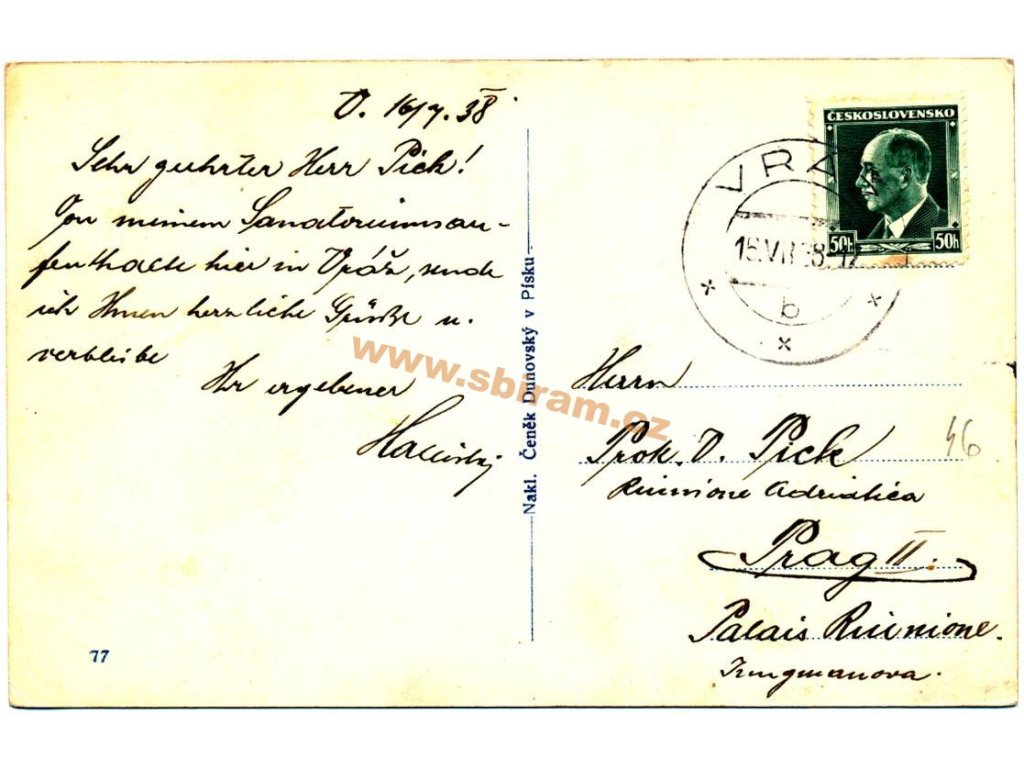 V. 16/7. 38
Sehr geehrter Herr Pick!
Von meinem Sanatoriumsau-
fenthalte hier in Vráž, sende
ich Ihnen herzliche Grüße u.
verbleibe
Ihr ergebener
77
Nakl. Čeněk Dunovský v Písku
www.sbiram.cz
ČESKOSLOVENSKO
50h 50h
VRÁ
15.VII 38. 17
b
Herrn
Prok. D. Pick
Riunione Adriatica
Prag II.
Palais Riunione.
Jungmanova.
46